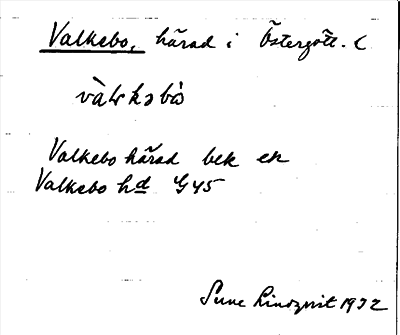 Valkebo, härad i Östergötl.
vàlkəbò
Valkebo härad bek en
Valkebo hd G45
Sune Lindqvist 1932